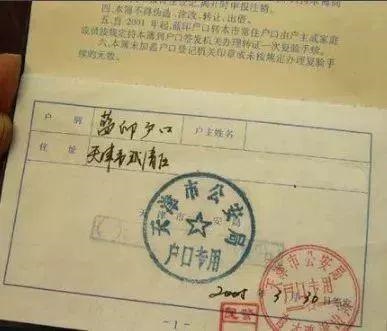 四、本簿不得伪造、涂改、转让、出借。
五、自2001年起，蓝印户口转本市常住户口由户主或家庭
成员按规定持本簿到户口签发机关办理转证一次复验手续。
六、本簿未加盖户口登记机关印章或未按规定办理复验手
续的无效。
户别 蓝印户口 户主姓名
住址 天津市
天津市公安局
户口专用
天津市公安局
户口专用
2005 3月30日签发
-1-